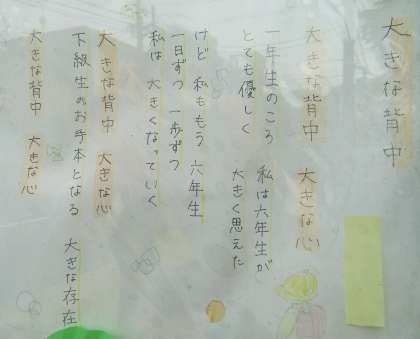 大きな背中
大きな背中 大きな心
一年生のころ 私は六年生が
とても優しく 大きく思えた
けど 私ももう 六年生
一日ずつ 一歩ずつ
私は 大きくなっていく
大きな背中 大きな心
下級生のお手本となる 大きな存在
大きな背中 大きな心